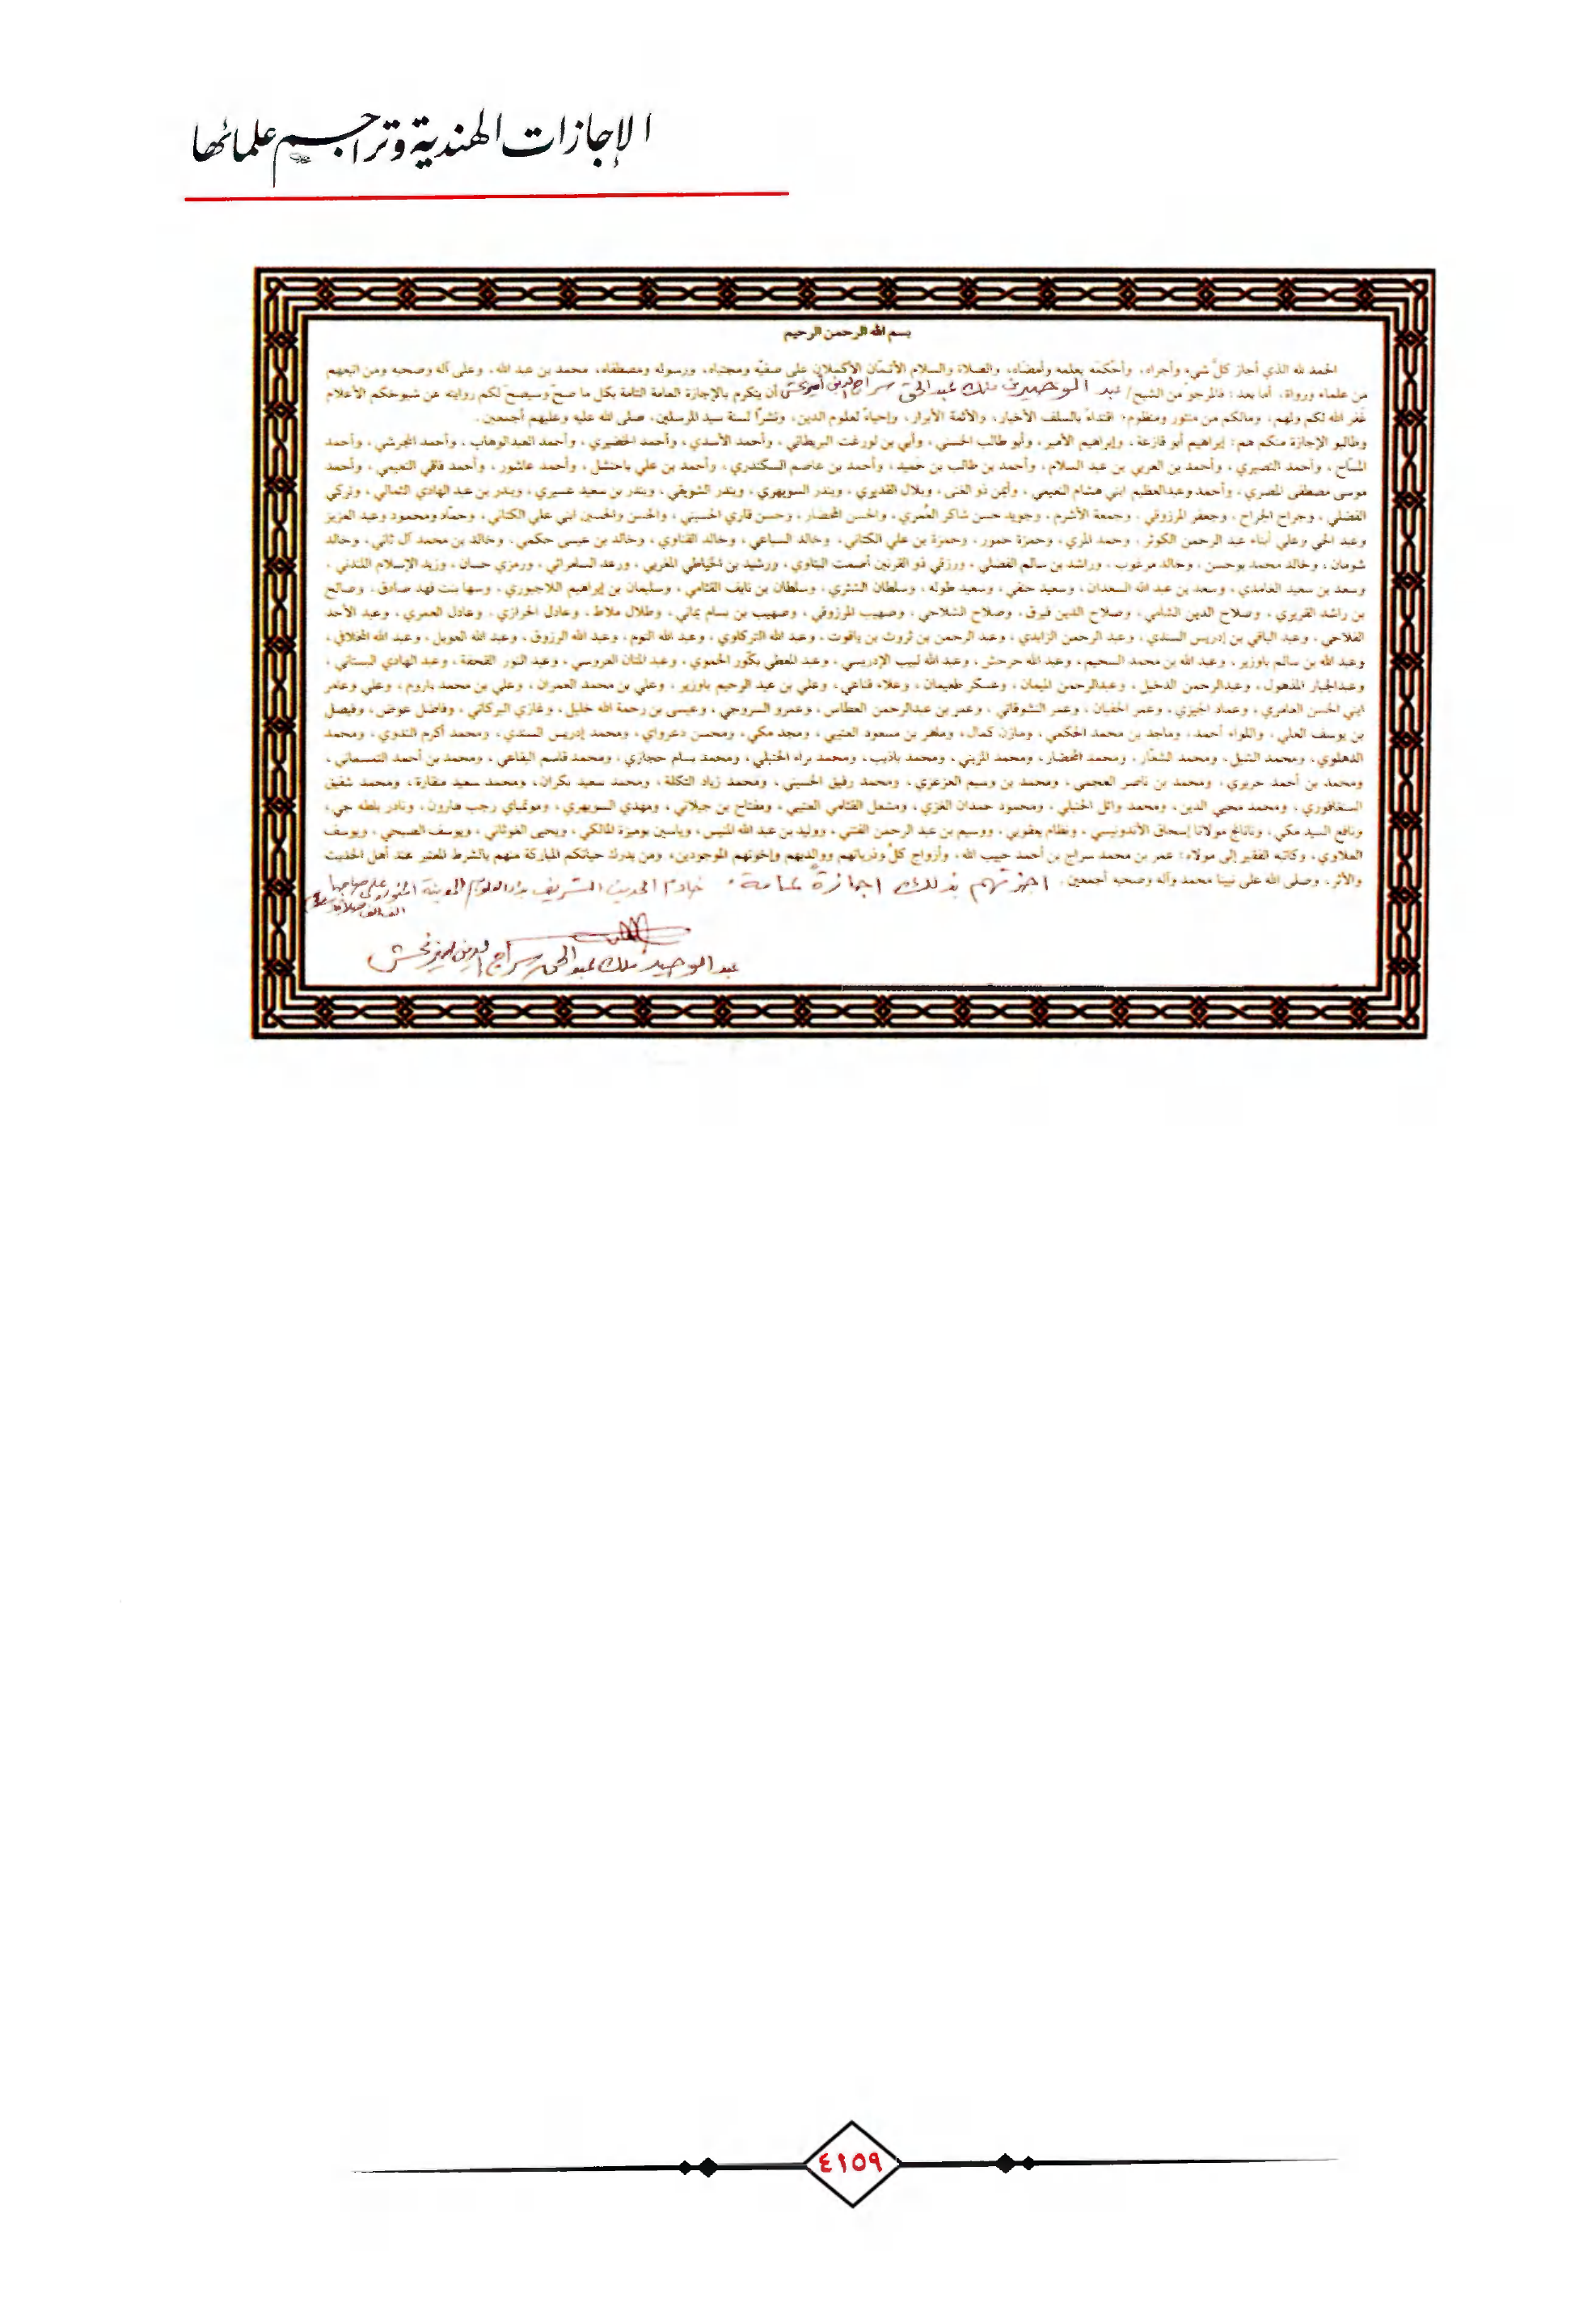 الإجازات الهندية وتراجم علمائها
بسم الله الرحمن الرحيم
الحمد لله الذي أجاز كلَّ شيء وأجراه، وأحكمَه بعلمه وأمضاه، والصلاة والسلام الأتمّان الأكملان على صفيّه ومجتباه، ورسوله ومصطفاه، محمد بن عبد الله، وعلى آله وصحبه ومن اتبعهم
من علماء ورواة، أما بعد: فالمرجوّ من الشيخ/ عبد الوحيد بن ملك عبد الحق سراج الدين أمير بخش أن يتكرم بالإجازة العامة التامة بكل ما صحّ وسيصحّ لكم روايته عن شيوخكم الأعلام
غفر الله لكم ولهم، ومالكم من منثور ومنظوم؛ اقتداءً بالسلف الأخيار، والأئمة الأبرار، وإحياءً لعلوم الدين، ونشرًا لسنة سيد المرسلين، صلى الله عليه وعليهم أجمعين.
وطالبو الإجازة منكم هم: إبراهيم أبو قازعة، وإبراهيم الأمير، وأبو طالب الحسني، وأبي بن لورغت البريطاني، وأحمد الأسدي، وأحمد الخضيري، وأحمد العبدالوهاب، وأحمد المجرشي، وأحمد
المسّاح، وأحمد النصيري، وأحمد بن العربي بن عبد السلام، وأحمد بن طالب بن حميد، وأحمد بن عاصم السكندري، وأحمد بن علي باحنشل، وأحمد عاشور، وأحمد فاقي النعيمي، وأحمد
موسى مصطفى المصري، وأحمد وعبدالعظيم ابني هشام النعيمي، وأيمن ذو الغنى، وبلال القديري، وبندر السويهري، وبندر الشويقي، وبندر بن سعيد عسيري، وبدر بن عبد الهادي الشمالي، وتركي
الفضلي، وجراح الجراح، وجعفر المرزوقي، وجمعة الأشرم، وجويد حسن شاكر العُمري، والحسن المحضار، وحسن قاري الحسيني، والحسن والحسين ابني علي الكتاني، وحمّاد ومحمود وعبد العزيز
وعبد الحي وعلي أبناء عبد الرحمن الكوثر، وحمد المري، وحمزة حمور، وحمزة بن علي الكتاني، وخالد السباعي، وخالد القناوي، وخالد بن عيسى حكمي، وخالد بن محمد آل ثاني، وخالد
شومان، وخالد محمد بوحسن، وخالد مرغوب، وراشد بن سالم الفضلي، ورزقي ذو القرنين أصمت البتاوي، ورشيد بن الخياطي المغربي، ورعد السامرائي، ورمزي حسان، وزيد الإسلام المدني،
وسعد بن سعيد الغامدي، وسعد بن عبد الله السعدان، وسعيد حنفي، وسعيد طوله، وسلطان الشثري، وسلطان بن نايف القثامي، وسليمان بن إبراهيم اللاجبوري، وسها بنت فهد صادق، وصالح
بن راشد القريري، وصلاح الدين الشامي، وصلاح الدين فيرق، وصلاح الشلاحي، وصهيب المرزوقي، وصهيب بن بسام يماني، وطلال ملاط، وعادل الحرازي، وعادل العمري، وعبد الأحد
الفلاحي، وعبد الباقي بن إدريس السندي، وعبد الرحمن الزايدي، وعبد الرحمن بن ثروت بن ياقوت، وعبد الله التركاوي، وعبد الله التوم، وعبد الله الرزوق، وعبد الله العويل، وعبد الله المخلافي،
وعبد الله بن سالم باوزير، وعبد الله بن محمد السحيم، وعبد الله حرحش، وعبد الله لبيب الإدريسي، وعبد المعطي بكّور الحموي، وعبد المنان العروسي، وعبد النور القحفة، وعبد الهادي البستاني،
وعبدالجبار المذهول، وعبدالرحمن الدخيل، وعبدالرحمن الميمان، وعسكر طعيمان، وعلاء قناعي، وعلي بن عبد الرحيم باوزير، وعلي بن محمد العمران، وعلي بن محمد باروم، وعلي وعامر
ابني الحسن العامري، وعماد الجيزي، وعمر الحفيان، وعمر النشوقاتي، وعمر بن عبدالرحمن العطاس، وعمرو السروجي، وعيسى بن رحمة الله خليل، وغازي البركاتي، وفاضل عوض، وفيصل
بن يوسف العلي، واللواء أحمد، وماجد بن محمد الحكمي، ومازن كمال، وماهر بن مسعود العتيبي، ومجد مكي، ومحسن دغرواي، ومحمد إدريس السندي، ومحمد أكرم الندوي، ومحمد
الدهلوي، ومحمد الشبل، ومحمد الشعّار، ومحمد المحضار، ومحمد المزيني، ومحمد باذيب، ومحمد براء الحنبلي، ومحمد بسام حجازي، ومحمد قاسم البقاعي، ومحمد بن أحمد التمسماني،
ومحمد بن أحمد حريري، ومحمد بن ناصر العجمي، ومحمد بن وسيم العزعزي، ومحمد رفيق الحسيني، ومحمد زياد التكلة، ومحمد سعيد بكران، ومحمد سعيد منقارة، ومحمد شفيق
السنغافوري، ومحمد محيي الدين، ومحمد وائل الحنبلي، ومحمود حمدان الغزي، ومشعل القثامي العتيبي، ومفتاح بن جيلاني، ومهدي السويهري، ورجب هارون، ونادر بلطه جي،
ونافع السيد مكي، مولانا إسحاق الأندونيسي، ونظام يعقوبي، ووسيم بن عبد الرحمن الفتني، ووليد بن عبد الله المنيس، وياسين بوميزة المالكي، ويحيى الغوثاني، ويوسف الصبحي، ويوسف
العلاوي، وكاتبه الفقير إلى مولاه: عمر بن محمد سراج بن أحمد حبيب الله، وأزواج كلٍّ وذرياتهم ووالديهم وإخوتهم الموجودين، ومن يدرك حياتكم المباركة منهم بالشرط المعتبر عند أهل الحديث
والأثر، وصلى الله على نبينا محمد وآله وصحبه أجمعين. اجزتهم بذلك اجازةً عامة. خادم الحديث الشريف بدار العلوم المدينة المنورة على صاحبها
عبد الوحيد ملك عبد الحق سراج الدين امير بخش
٤١٥٩